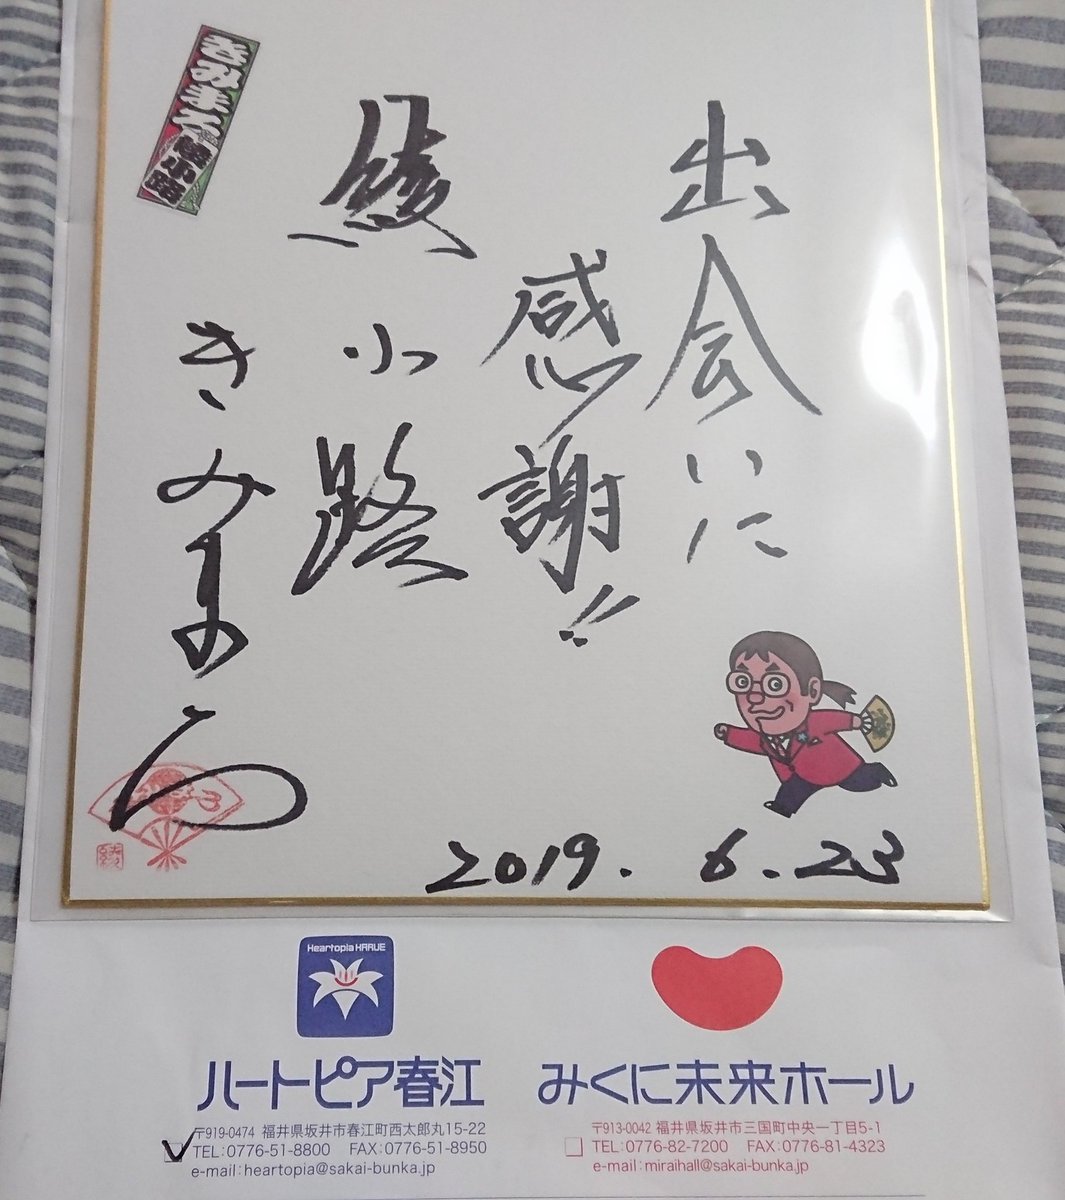 出会いに
感謝!!
綾小路
きみまろ
2019.6.23
Heartopia HARUE
ハートピア春江
〒919-0474 福井県坂井市春江町西太郎丸15-22
TEL:0776-51-8800 FAX:0776-51-8950
e-mail:heartopia@sakai-bunka.jp
みくに未来ホール
〒913-0042 福井県坂井市三国町中央一丁目5-1
TEL:0776-82-7200 FAX:0776-81-4323
e-mail:miraihall@sakai-bunka.jp